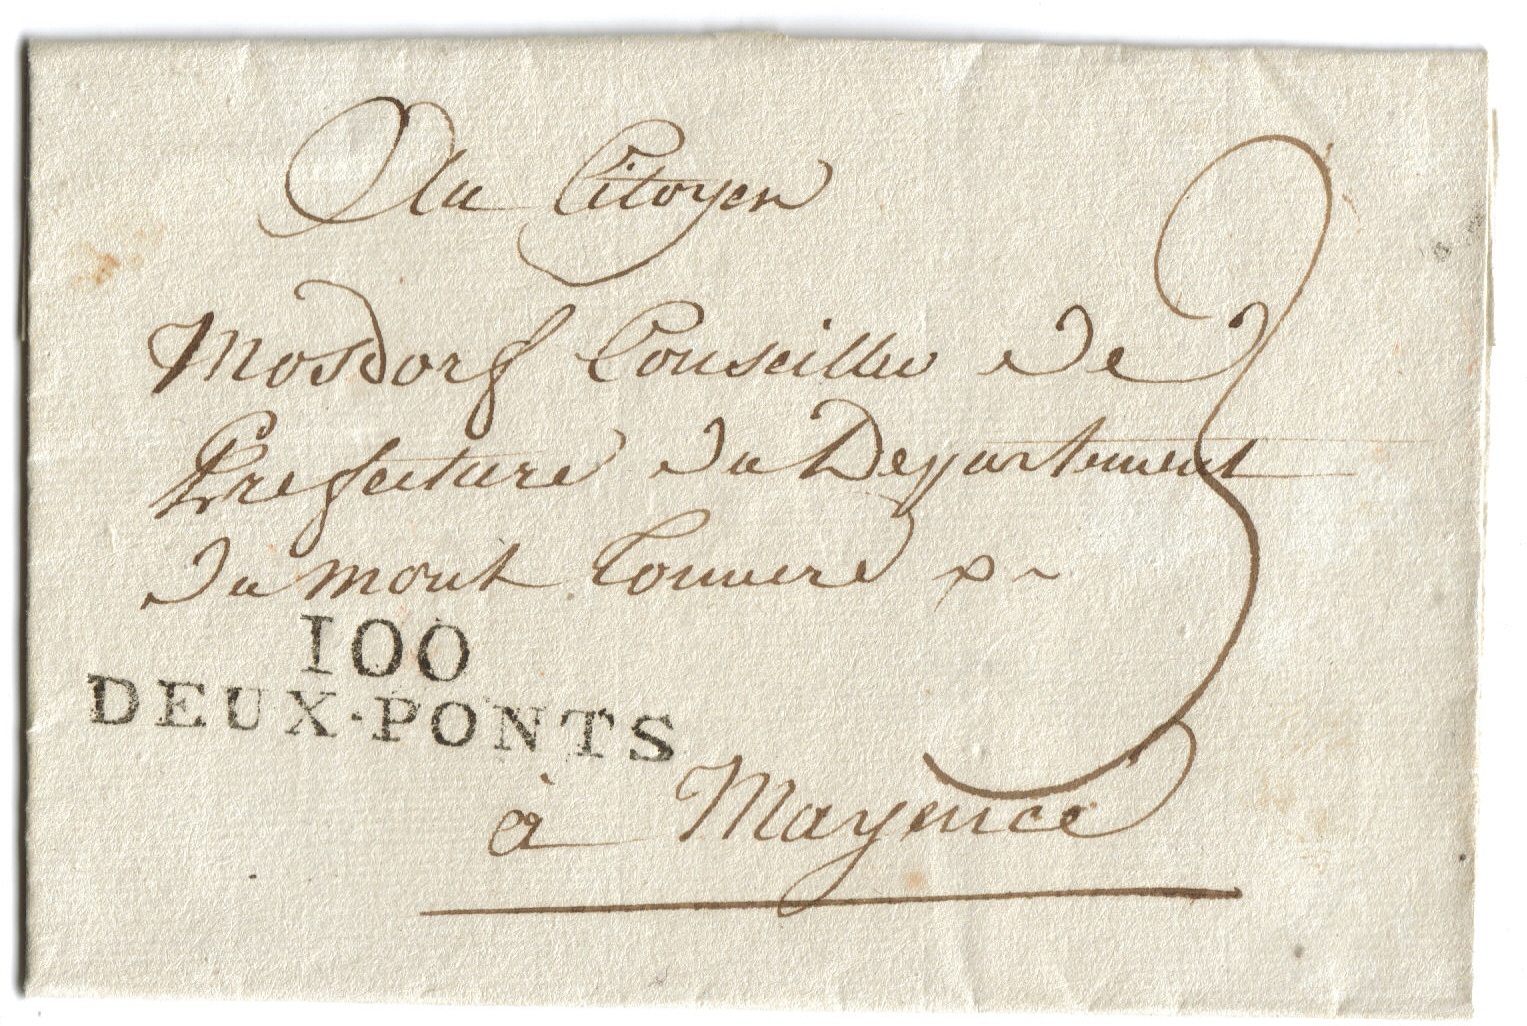 Au Citoyen
Mosdorf Conseiller de
Prefecture du Departement
du mont Tonnere
100
DEUX·PONTS
à Mayence
3